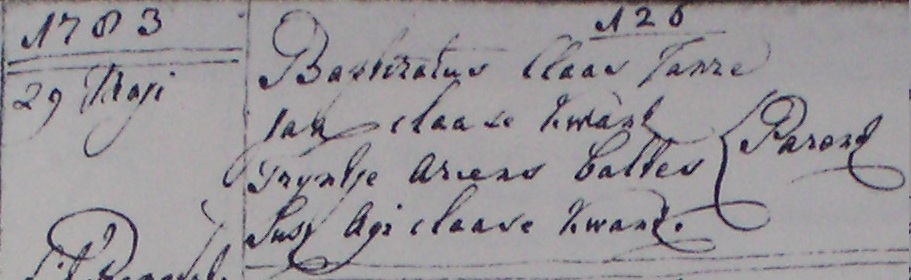 1783
126
29 Maji
Baptizatus Claas
Jan Claase Kwant
Tryntje Ariens Baltes
Parent
Susc Agi Claase Kwant.